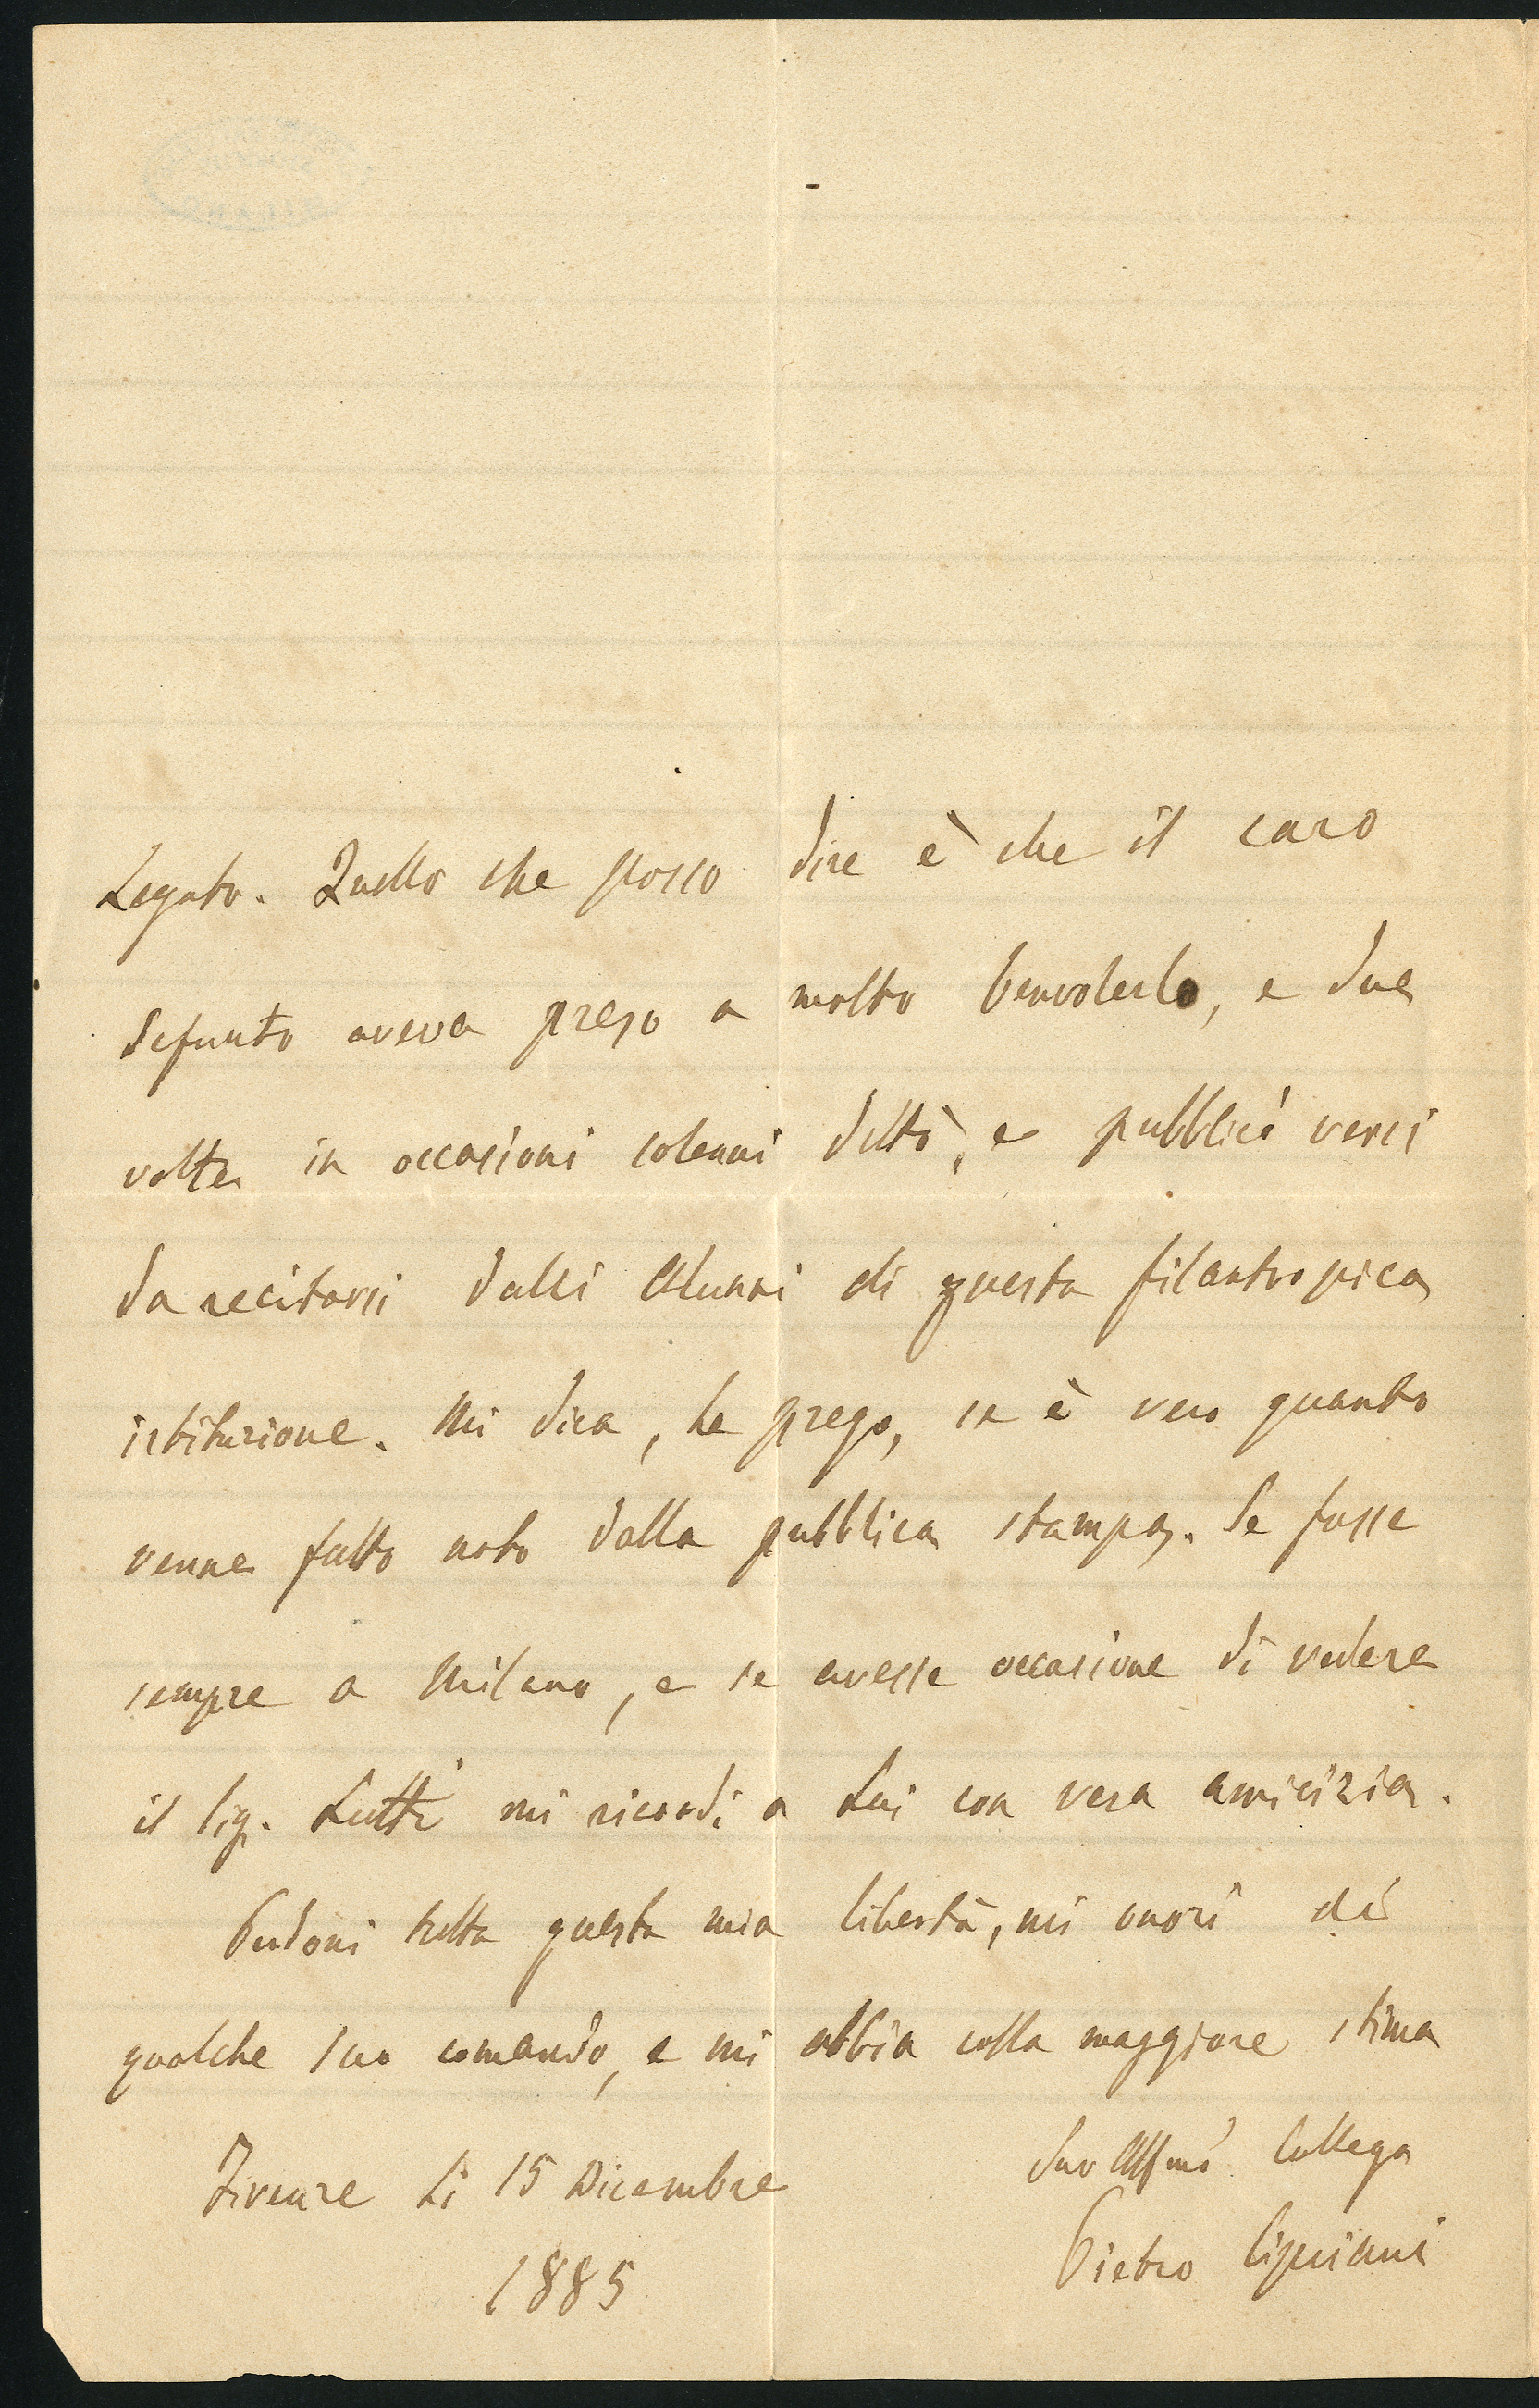 Legato. Quello che posso dire è che il caro
defunto aveva preso a molto benvolerlo, e due
volte in occasioni solenni dettò, e pubblicò versi
da recitarsi dalli Alunni di questa filantropica
istituzione. Mi dica, Le prego, se è vero quanto
venne fatto noto dalla pubblica stampa. Se fosse
sempre a Milano, e se avesse occasione di vedere
il Sig. Lutti mi ricordi a Lui con vera amicizia.
Perdoni tutta questa mia libertà, mi onori di
qualche suo comando, e mi abbia colla maggiore stima
Suo Affmo Collega
Firenze Li 15 Dicembre
Pietro Cipriani
1885